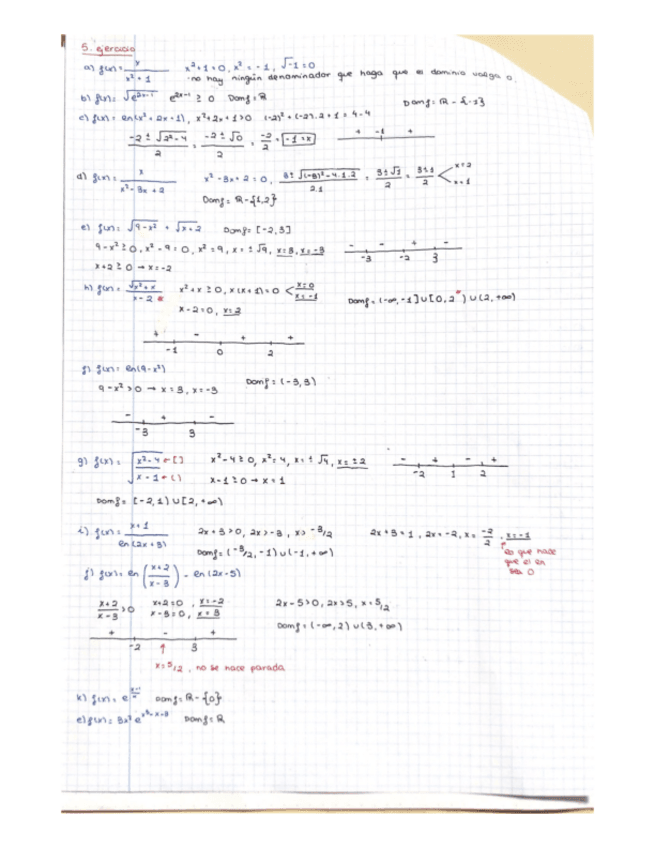 5. ejercicio
a) f(x) = x / x²+1   x²+1=0, x²=-1, √-1=0
no hay ningún denominador que haga que el dominio valga 0.
b) f(x) = √e^(2x-1)   e^(2x-1) ≥ 0   Domf = R
Domf = R - {-1}
c) f(x) = en(x²+2x+1), x²+2x+1>0   (-2)²+(-2).2+1 = 4-4
-2 ± √2²-4 / 2 = -2 ± √0 / 2 = -2/2 = -1 = x   + -1 +
d) f(x) = x / x²-3x+2   x²-3x+2=0, 3 ± √(-3)²-4.1.2 / 2.1 = 3±√1 / 2 = 3±1 / 2 < x=2 x=1
Domf = R - {1,2}
e) f(x) = √9-x² + √x+2   Domf = [-2,3]
9-x² ≥ 0, x²-9=0, x²=9, x=±√9, x=3, x=-3   - - + -
-3 -2 3
x+2 ≥ 0 → x=-2
h) f(x) = √x²+x / x-2   x²+x ≥ 0, x(x+1)=0 < x=0 x=-1   Domf = (-∞,-1] ∪ [0,2) ∪ (2,+∞)
x-2=0, x=2
+ - + +
-1 0 2
f) f(x) = en(9-x²)
9-x² > 0 → x=3, x=-3   Domf = (-3,3)
- + -
-3 3
g) f(x) = √x²-4 ← [] / x-1 ← ()   x²-4 ≥ 0, x²=4, x=±√4, x=±2   - + - +
-2 1 2
x-1 ≥ 0 → x=1
Domf = [-2,1) ∪ [2,+∞)
i) f(x) = x+1 / en(2x+3)   2x+3>0, 2x>-3, x>-3/2   2x+3=1, 2x=-2, x=-2/2, x=-1
Domf = (-3/2,-1) ∪ (-1,+∞)
lo que hace
que el en
sea 0
j) f(x) = en(x+2 / x-3) - en(2x-5)
x+2 / x-3 > 0   x+2=0, x=-2   2x-5>0, 2x>5, x=5/2
x-3=0, x=3
Domf = (-∞,2) ∪ (3,+∞)
+ - +
-2 3
x=5/2, no se hace parada
k) f(x) = e^   Domf = R - {0}
e) f(x) = 3x² e^(x³-x-3)   Domf = R